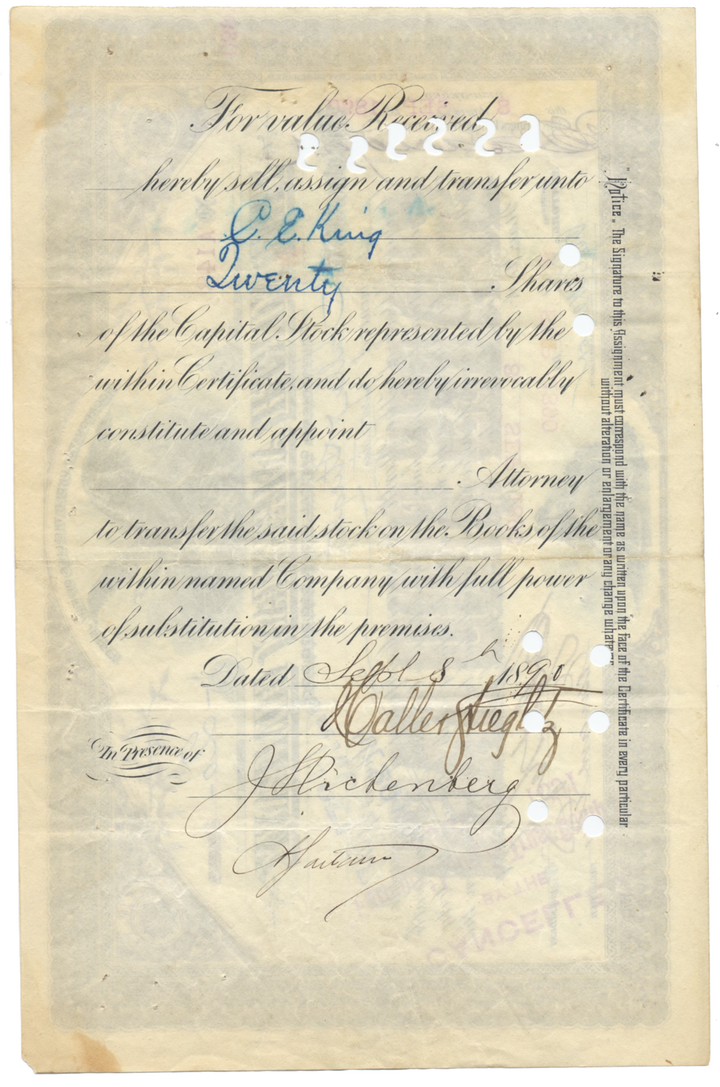 For value Received
hereby sell, assign and transfer unto
C. E. King
Twenty Shares
of the Capital Stock represented by the
within Certificate, and do hereby irrevocably
constitute and appoint
Attorney
to transfer the said stock on the Books of the
within named Company with full power
of substitution in the premises.
Dated Sept 8th 1890
In Presence of
Notice. The Signature to this Assignment must correspond with the name as written upon the face of the Certificate in every particular
without alteration or enlargement or any change whatever
CANCELLE